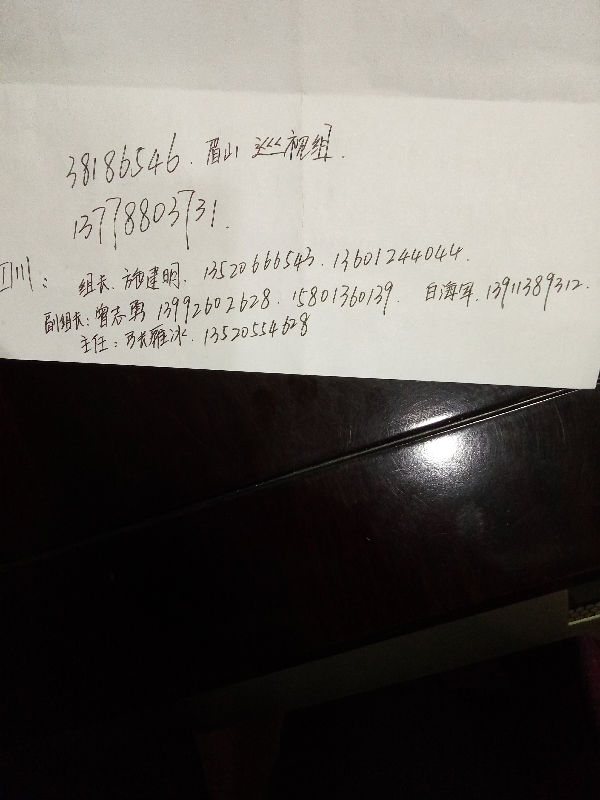 38186546. 眉山 巡视组.
13778803731.
四川: 组长. 施建明. 13520666543. 13601244044.
副组长: 曾志勇 13992602628. 15801360139. 白海军. 13911389312.
主任: 张雁冰. 13520554628